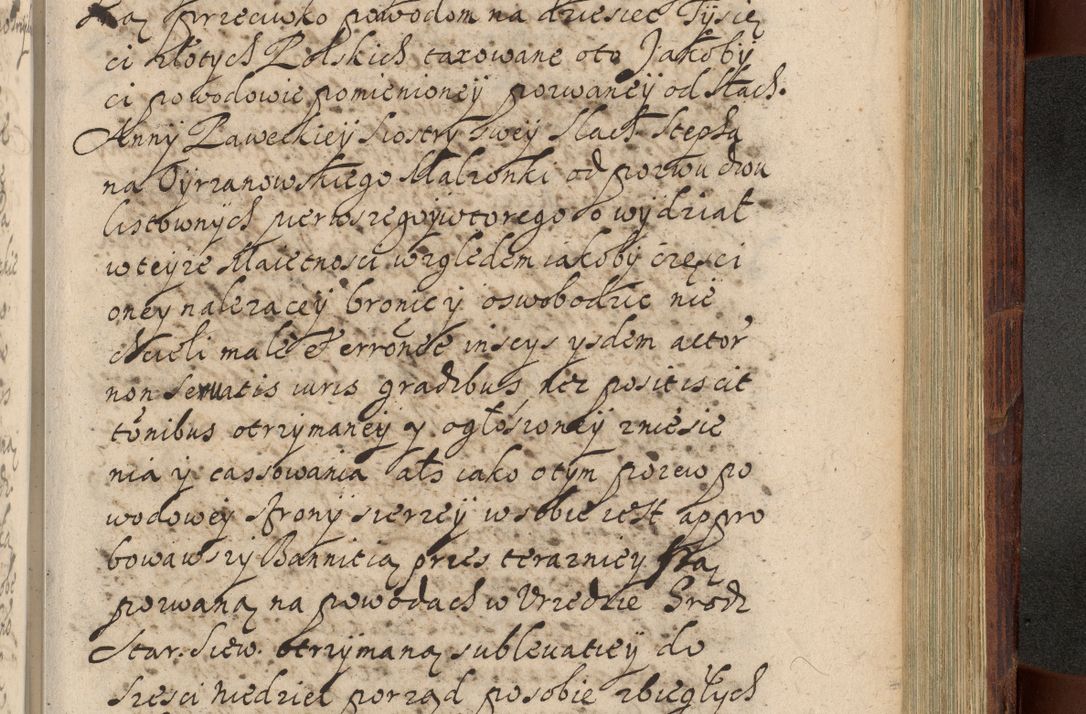 ką przeciwko powodom na dziesięc Tysię
ci złotych Polskich taxowane oto Jakoby
ci powodowie pomienioney pozwaney od Slach.
Anny Paweckiey Siostry swey Slach. Stepha
na Dyrzanowskiego Małzonki od pozwu dwu
listownych pierwszego ywtorego o wydział
wteyze Maietnosci względem iakoby częsci
oney nalezacey bronic y oswobodzic nie
chcieli male et erronee inseys ysdem actor
non seruatis iuris gradibus nec positis cit
tonibus otrzymaney y ogłószoney zniesie
nia y cassowania als iako otym pozew po
wodowey strony sierzey wsobie iest appro
bowawszy Bannitią przes terazniey
pozwaną na powodach w Vrzedzie Grodz
Star. Siew. otrzymaną sublevatiey do
szesci niedziel porząd posobie zbiegłych